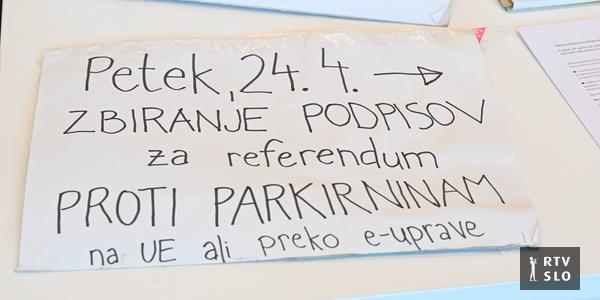 Petek, 24. 4. →
ZBIRANJE PODPISOV
za referendum
PROTI PARKIRNINAM
na UE ali preko e-uprave
RTV
SLO